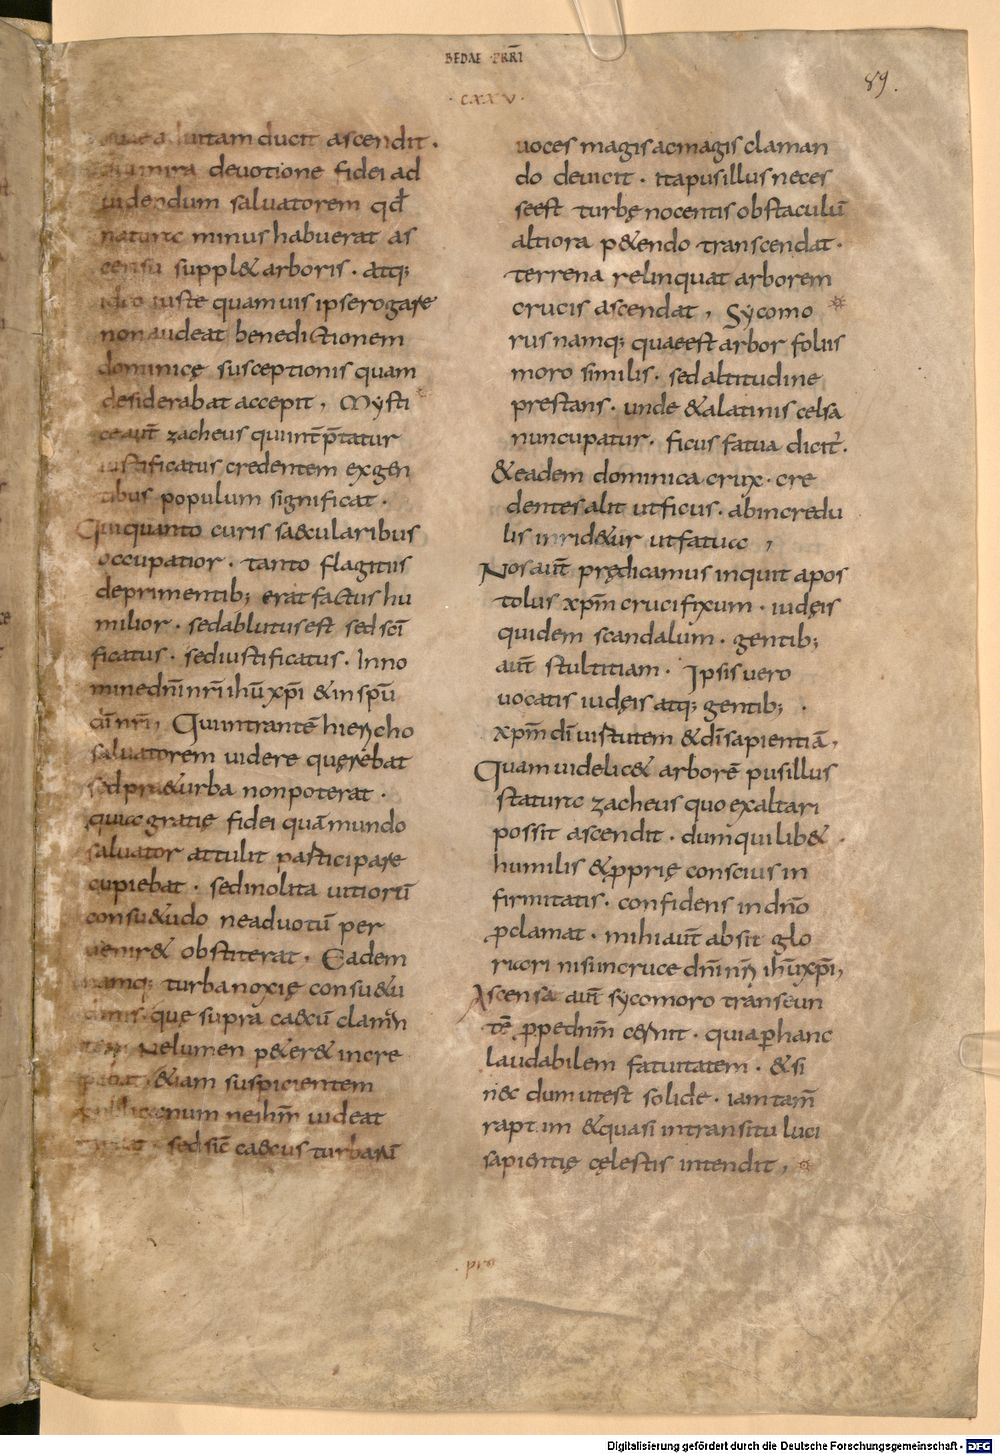 BEDAE · PRƁI
· CXXV ·
89.
uitam ducit ascendit ·
mira deuotione fidei ad
uidendum saluatorem qđ
naturae minus habuerat as
censu suppl& arboris · atq;
ideo iuste quamuis ipse rogare
non audeat benedictionem
dominicę susceptionis quam
desiderabat accepit, Mysti
ce aut̄ zacheus qui int̄p̄tatur
iustificatus credentem ex gen
tibus populum significat ·
Qui quanto curis saecularibus
occupatior · tanto flagitiis
deprimentib; erat factus hu
milior · sed ablutus est sed sc̄i
ficatus · sed iustificatus · In no
mine dn̄i nr̄i ihū xp̄i & in spū
di nr̄i, Qui intrantē hiericho
saluatorem uidere quęrebat
sed prae turba non poterat ·
quia gratię fidei quā mundo
saluator attulit participare
cupiebat · sed inolita uitiorū
consu&udo ne ad uotū per
uenir& obstiterat · Eadem
namq; turba noxię consu&u
dinis · quę supra caecū claman
tem Ne lumen p&er& incre
pabat, &iam suspicientem
publicanum ne ihm̄ uideat
sed sic̄ caecus turbarū
uoces magis ac magis claman
do deuicit · ita pusillus neces
se est turbę nocentis obstaculū
altiora p&endo transcendat ·
terrena relinquat arborem
crucis ascendat, Sycomo
rus namq; quae est arbor foliis
moro similis · sed altitudine
prestans · unde & a latinis celsa
nuncupatur · ficus fatua dicit̄ ·
& eadem dominica crux · cre
dentes alit ut ficus · ab incredu
lis inrid&ur ut fatua,
Nos aut̄ prędicamus inquit apos
tolus xp̄m crucifixum · iudęis
quidem scandalum · gentib;
aut̄ stultitiam · Ipsis uero
uocatis iudęis atq; gentib; ·
xp̄m dī uirtutem & dī sapientiā,
Quam uidelic& arborē pusillus
staturae zacheus quo exaltari
possit ascendit · dum quilib&
humilis & ꝓprię conscius in
firmitatis · confidens in dn̄o
ꝓclamat · mihi aut̄ absit glo
riari nisi in cruce dn̄i nr̄i ihū xp̄i,
Ascensa aut̄ sycomoro transeun
tē ꝓpe dn̄m cernit · quia ꝑ hanc
laudabilem fatuitatem · & si
nec dum ut est solide · iam tam̄
raptim & quasi in transitu luci
sapientię cęlestis intendit,